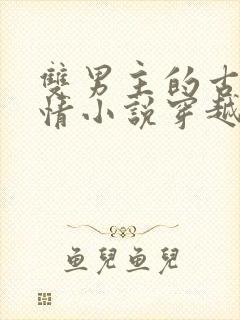 雙男主的古
情小說穿越
魚兒魚兒